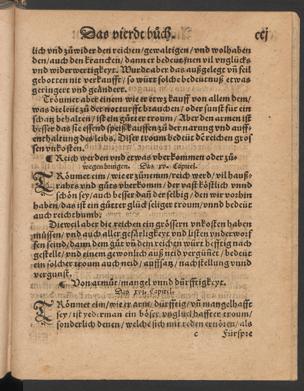 Das vierdt bůch. ccj
lich vnd zůwider den reichen/gewaltigen/vnd wolhaben
den/auch den krancken/dann er bedeut jnen vil vnglücks
vnd widerwertigkeyt. Wurde aber das außgelegt vň feil
gebotten nit verkaufft/so würt solche bedeutnuß etwas
geringert vnd geändert.
Tröumet aber einem wie er etwz kauff von allem dem/
was die leüt zů der notturfft brauchen/oder sunst für ein
schatz behalten/ist ein gůtter troum/Aber den armen ist
besser das sie essend speiß kauffen zů der narung vnd auff-
enthaltung des leibs. Diser troum bedeüt dē reichē gros
sen vnkosten.
¶ Reich werden vnd etwas vberkommen oder zů-
wegen bringen. Das xv. Capitel.
TRöumet eim/wie er zůnem an reich werd/vil hauß-
rahts vnd gůts vberkomm/der vast köstlich vnnd
schön sey/auch besser dañ der selbig/den wir vorhin
haben/das ist ein gůtter glücksseliger troum/vnnd bedeüt
auch reichthumb.
Dieweil aber die reichen ein grössern vnkosten haben
müssen/vnd auch aller geferligkeyt vnd listen vnderworf
fen seind/dann dem gůt vň dem reichen würt hefftig nach
gestelt/vnd einem gewonlich auß neid vergünet/bedeüt
ein solcher troum auch neid/auffsatz/nachstellung vnnd
vergunst.
¶ Von armůt/mangel vnnd dürfftigkeyt.
Das xvj. Capitel.
TRöumet eim/wie er arm/dürfftig/vň mangelhafft
sey/ist yederman ein böser vnglückhaffter troum/
sonderlich denen/welche sich mit reden ernören/als
c Fürspre